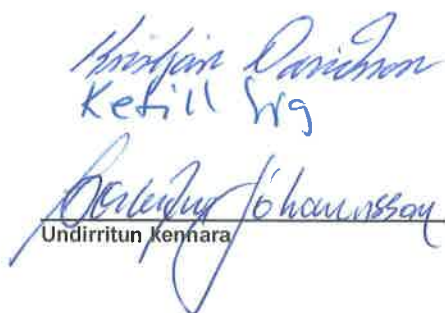 Kristján Davíðsson
Ketill
Jóhannsson
Undirritun Kennara